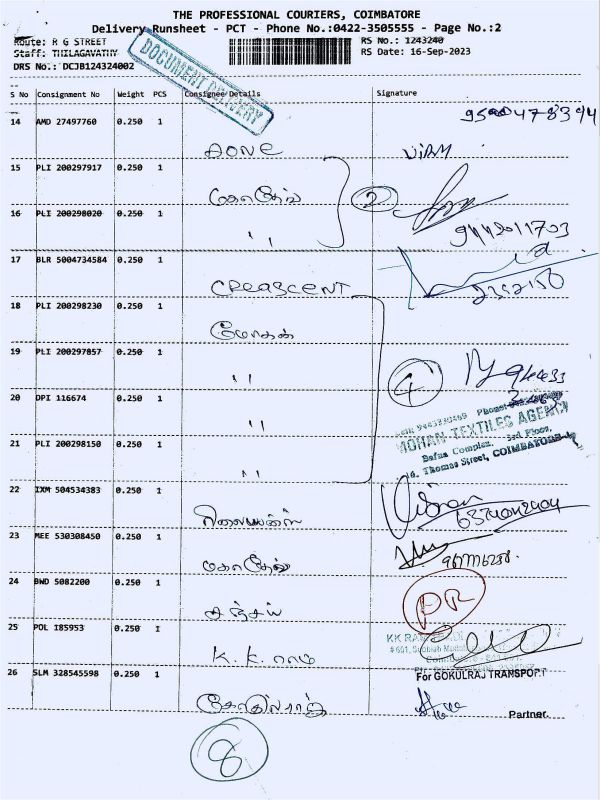 THE PROFESSIONAL COURIERS, COIMBATORE
Delivery Runsheet - PCT - Phone No.:0422-3505555 - Page No.:2
Route: R G STREET
RS No.: 1243240
Staff: THILAGAVATHY
RS Date: 16-Sep-2023
DRS No.: DCJB124324002
DOCUMENT DELIVERY
S No Consignment No Weight PCS Consignee Details Signature
14 AMD 27497760 0.250 1
AONE
15 PLI 200297917 0.250 1
மகாதேவ்
2
16 PLI 200298020 0.250 1
" 9442011703
17 BLR 5004734584 0.250 1
CREASCENT 2352150
18 PLI 200298230 0.250 1
மோகன்
19 PLI 200297857 0.250 1
"
4
94433
20 DPI 116674 0.250 1
"
MOHAN TEXTILES AGENCY
Bafna Complex, 3rd Floor,
Thomas Street, COIMBATORE-1
21 PLI 200298150 0.250 1
"
22 IXM 504534383 0.250 1
23 MEE 530308450 0.250 1
மகாதேவ்
24 BWD 5082200 0.250 1
சஞ்சய்
PR
25 POL 185953 0.250 1
K.K. ராம்
26 SLM 328545598 0.250 1
For GOKULRAJ TRANSPORT
கோகுல்ராஜ்
Partner
8